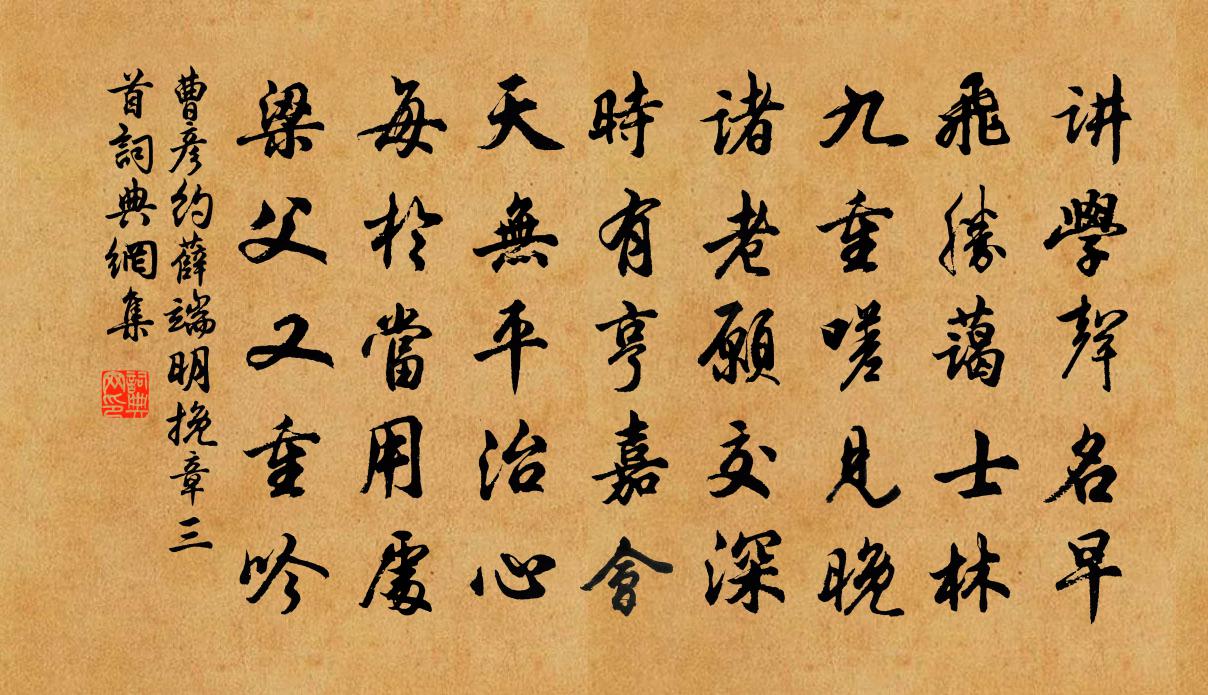 讲學聲名早
飛勝藹士林
九重嗟見晚
諸老願交深
時有亨嘉會
天無平治心
每於當用處
梁父又重吟
曹彥約薛端明挽章三
首詞典網集
詞典
网印